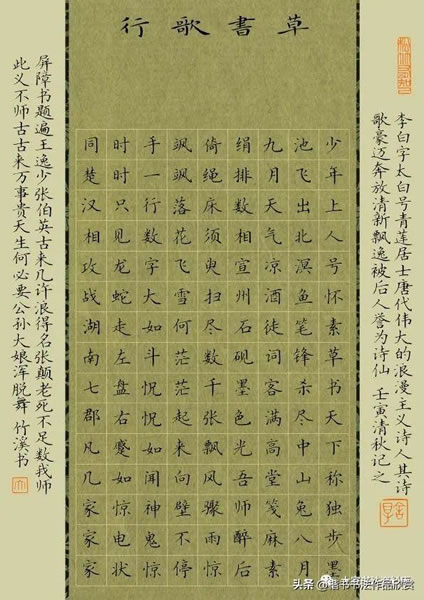 草書歌行
李白字太白号青莲居士唐代伟大的浪漫主义诗人其诗
歌豪迈奔放清新飘逸被后人誉为诗仙 壬寅清秋记之
少年上人号怀素草书天下称独步墨
池飞出北溟鱼笔锋杀尽中山兔八月
九月天气凉酒徒词客满高堂笺麻素
绢排数相宣州石砚墨色光吾师醉后
倚绳床须臾扫尽数千张飘风骤雨惊
飒飒落花飞雪何茫茫起来向壁不停
手一行数字大如斗怳怳如闻神鬼惊
时时只见龙蛇走左盘右蹙如惊电状
同楚汉相攻战湖南七郡凡几家家家
屏障书题遍王逸少张伯英古来几许浪得名张颠老死不足数我师
此义不师古古来万事贵天生何必要公孙大娘浑脱舞 竹溪书
头条 @楷书书法作品欣赏